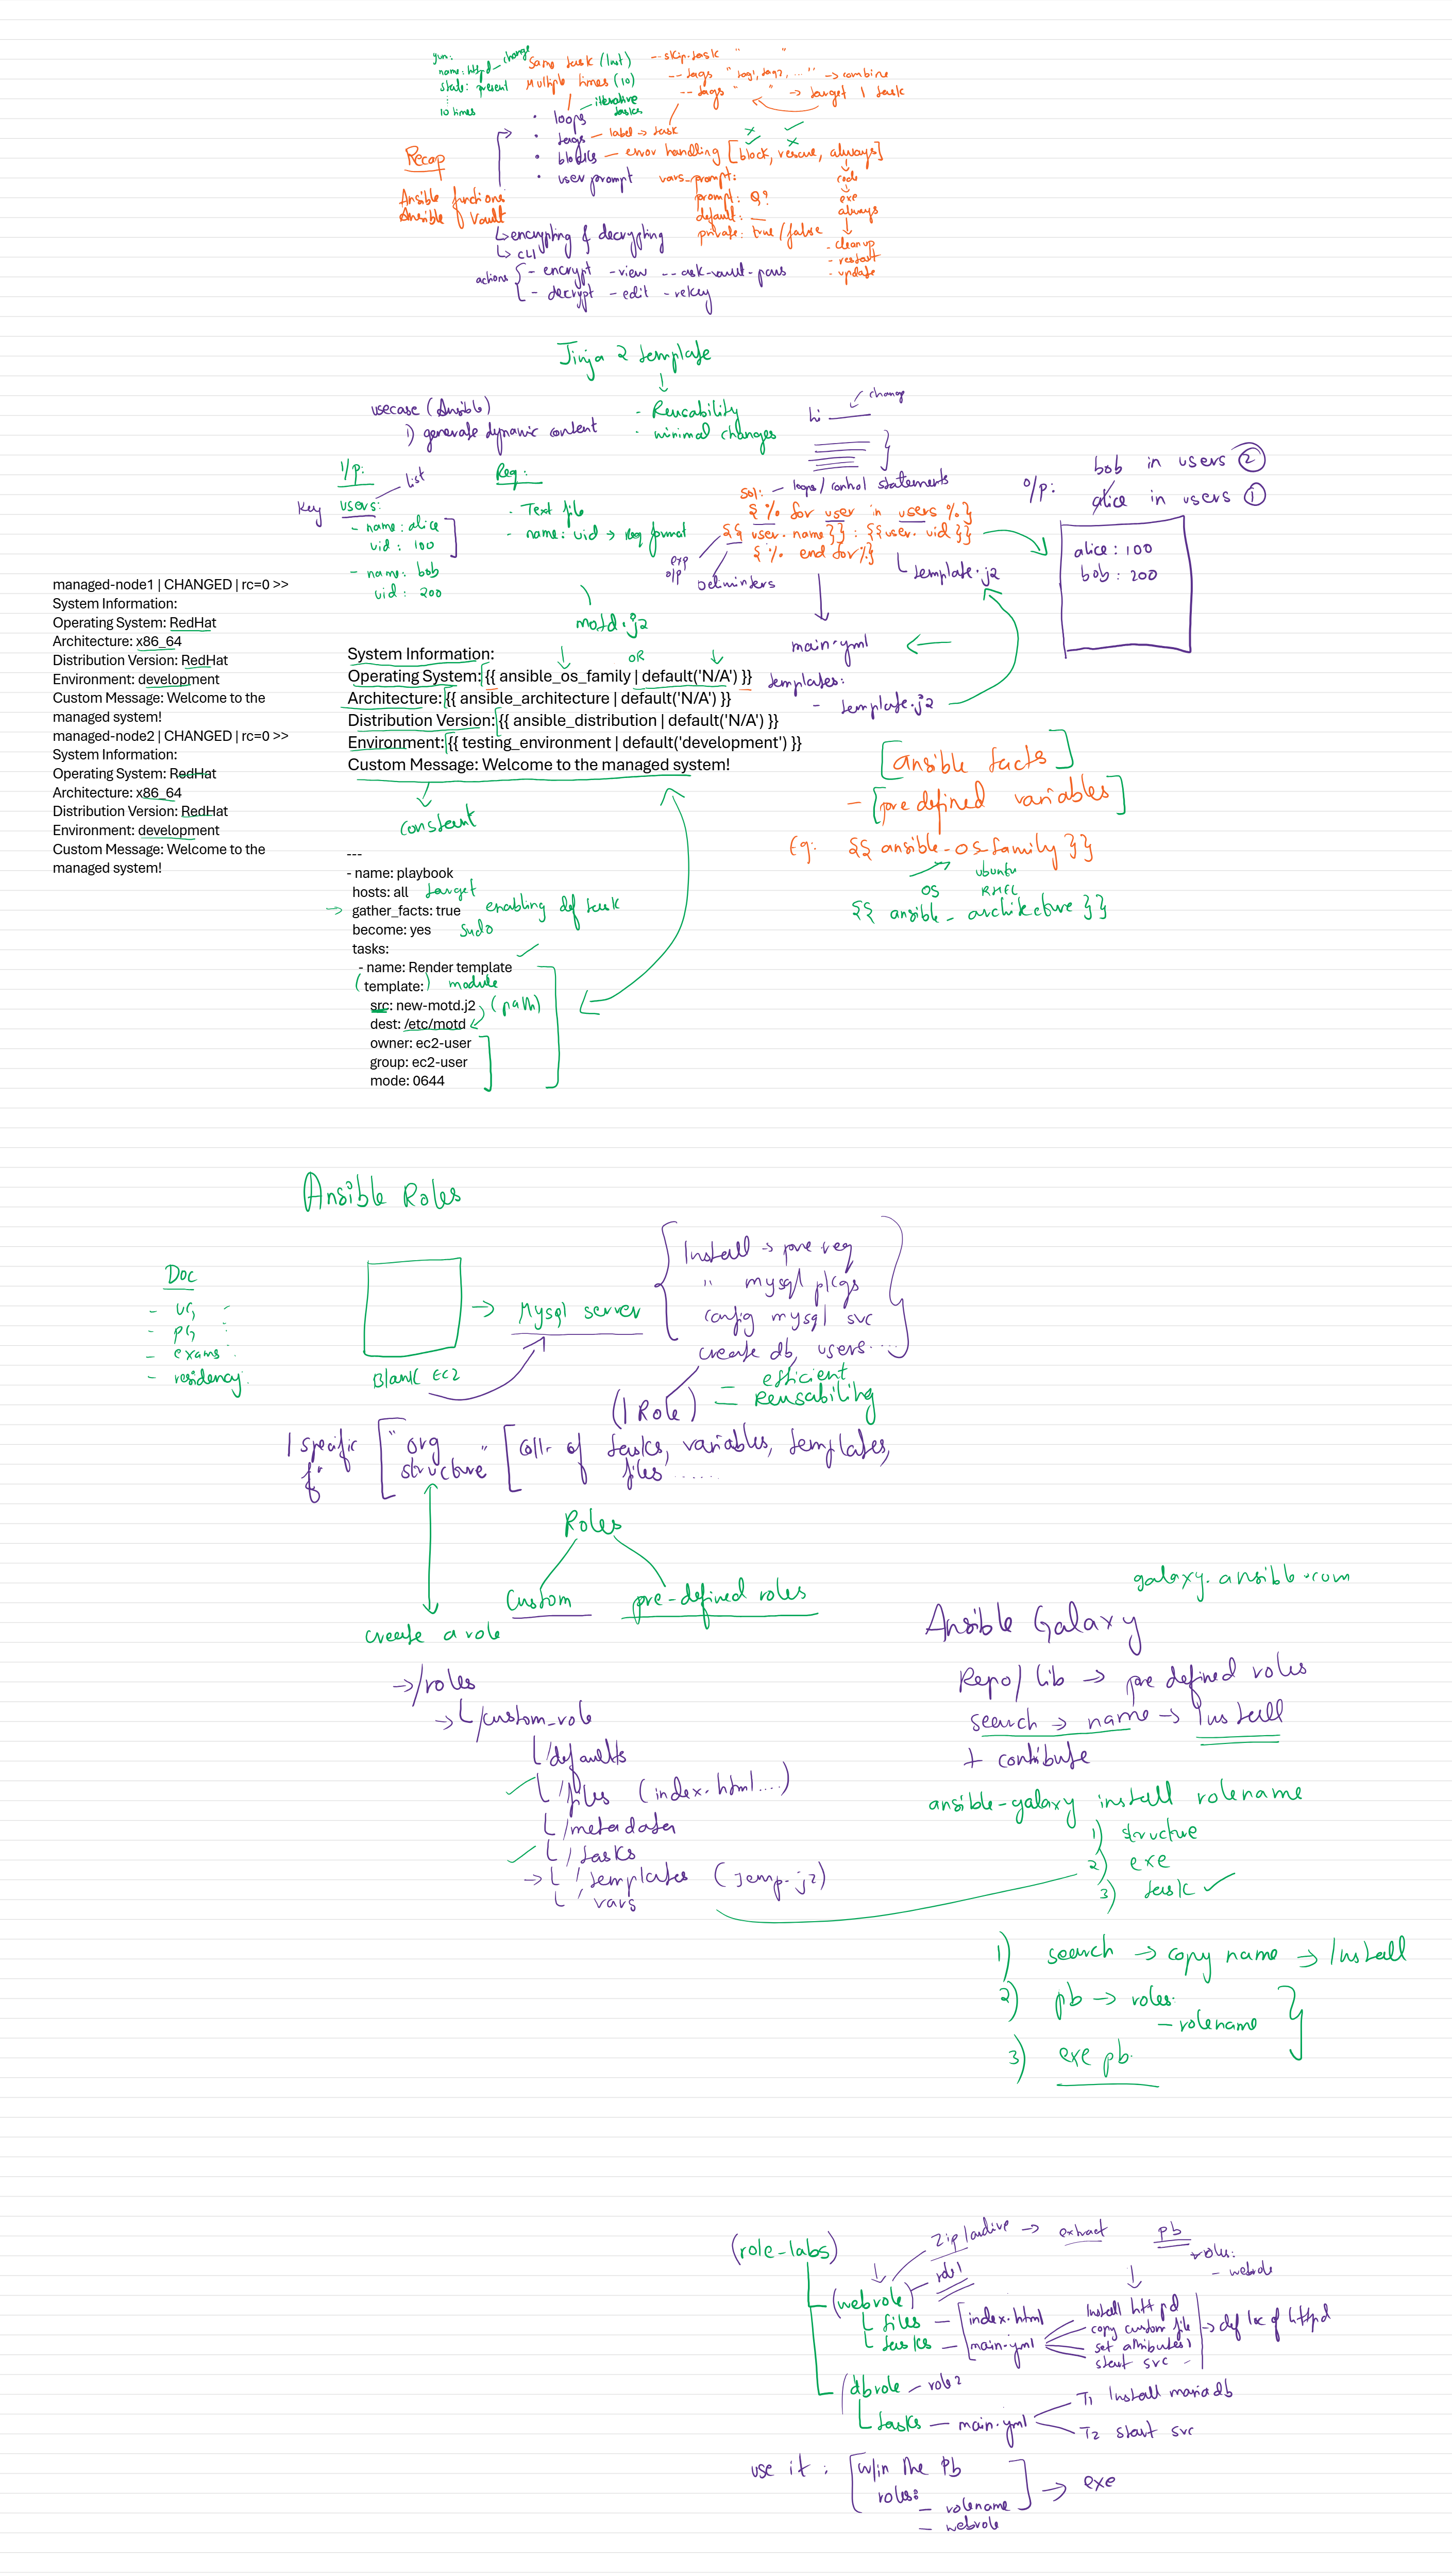 yum:
name: httpd - change
state: present
:
10 times
Same task (inst)
Multiple times (10)
-- skip.task " "
-- tags "tag1, tag2, ..." -> combine
-- tags " " -> target 1 task
Recap
Ansible functions
Ansible Vault
• loops - iterative tasks
• tags - label -> task
• blocks - error handling [block, rescue, always]
• user prompt
vars_prompt:
prompt: Q?
default: __
private: true/false
code
exe
always
- cleanup
- restart
- update
↳ encrypting & decrypting
↳ CLI
actions { - encrypt - view -- ask-vault-pass
- decrypt - edit - rekey
Jinja 2 template
- Reusability
- minimal changes
usecase (Ansible)
1) generate dynamic content
hi ____ change
I/p:
Key users: list
- name: alice
uid: 100
- name: bob
uid: 200
Req:
- Text file
- name: uid -> req format
Sol: - loops/control statements
{% for user in users %}
{{ user.name }} : {{ user.uid }}
{% end for %}
exp
o/p
Delimiters
template.j2
main.yml
templates:
- template.j2
O/p:
bob in users ②
alice in users ①
alice : 100
bob : 200
managed-node1 | CHANGED | rc=0 >>
System Information:
Operating System: RedHat
Architecture: x86_64
Distribution Version: RedHat
Environment: development
Custom Message: Welcome to the
managed system!
managed-node2 | CHANGED | rc=0 >>
System Information:
Operating System: RedHat
Architecture: x86_64
Distribution Version: RedHat
Environment: development
Custom Message: Welcome to the
managed system!
motd.j2
OR
System Information:
Operating System: {{ ansible_os_family | default('N/A') }}
Architecture: {{ ansible_architecture | default('N/A') }}
Distribution Version: {{ ansible_distribution | default('N/A') }}
Environment: {{ testing_environment | default('development') }}
Custom Message: Welcome to the managed system!
constant
[ansible facts]
- [pre defined variables]
Eg: {{ ansible_os_family }}
OS
ubuntu
RHEL
{{ ansible_architecture }}
---
- name: playbook
hosts: all target
gather_facts: true enabling def task
become: yes sudo
tasks:
- name: Render template
(template:) module
src: new-motd.j2 (path)
dest: /etc/motd
owner: ec2-user
group: ec2-user
mode: 0644
Ansible Roles
Doc
- UG
- PG
- exams
- residency
Blank EC2
-> Mysql server
Install -> pre req
" mysql pkgs
config mysql svc
create db, users....
(1 Role) = efficient
Reusability
1 specific fⁿ
"org structure"
[colln of tasks, variables, templates,
files ......
Roles
Custom
pre-defined roles
create a role
-> /roles
-> └ /custom_role
└ /defaults
└ /files (index.html....)
└ /metadata
└ /tasks
-> └ /templates (temp.j2)
└ /vars
galaxy.ansible.com
Ansible Galaxy
Repo/lib -> pre defined roles
search -> name -> Install
+ contribute
ansible-galaxy install rolename
1) structure
2) exe
3) task ✓
1) search -> copy name -> Install
2) pb -> roles:
- rolename
3) exe pb.
(role-labs)
Zip/archive -> extract
pb
roles:
- webrole
(webrole) - role1
└ files - index.html
└ tasks - main.yml
Install httpd
copy custom file
set attributes
start svc
-> def loc of httpd
(dbrole - role2
└ tasks - main.yml
T1 Install mariadb
T2 start svc
use it : w/in the Pb
roles:
- rolename
- webrole
-> exe